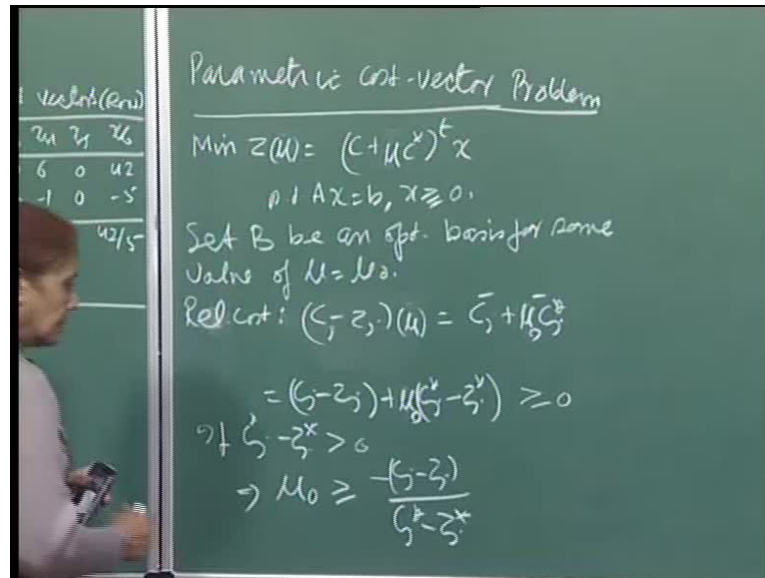 vectors (Row)
x₆
6 0 42
-1 0 -5
42/5
Parametric cost-vector Problem
Min Z(μ) = (C+μC*)ᵗx
s.t Ax=b, x≥0.
Let B be an opt. basis for some
value of μ=μ₀.
Rel. cost: (Cⱼ-Zⱼ)(μ) = C̄ⱼ + μ₀C̄ⱼ*
= (Cⱼ-Zⱼ)+μ₀(Cⱼ*-Zⱼ*) ≥0
If Cⱼ*-Zⱼ* > 0
⇒ μ₀ ≥ -(Cⱼ-Zⱼ)/(Cⱼ*-Zⱼ*)